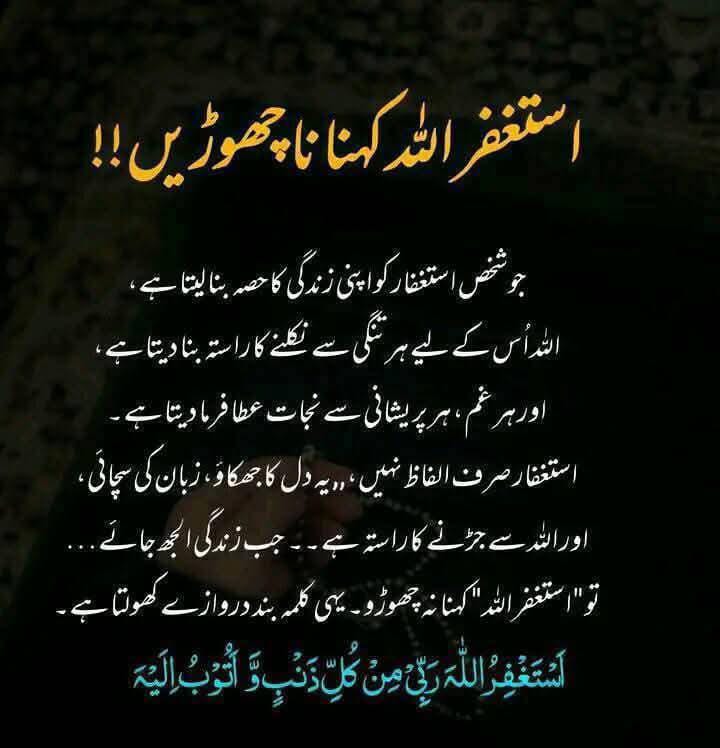 استغفر اللہ کہنا نا چھوڑیں !!
جو شخص استغفار کو اپنی زندگی کا حصہ بنا لیتا ہے،
اللہ اُس کے لیے ہر تنگی سے نکلنے کا راستہ بنا دیتا ہے،
اور ہر غم، ہر پریشانی سے نجات عطا فرما دیتا ہے۔
استغفار صرف الفاظ نہیں،،، یہ دل کا جھکاؤ، زبان کی سچائی،
اور اللہ سے جڑنے کا راستہ ہے۔۔ جب زندگی الجھ جائے...
تو "استغفر اللہ" کہنا نہ چھوڑو۔ یہی کلمہ بند دروازے کھولتا ہے۔
اَسْتَغْفِرُ اللّٰہَ رَبِّیْ مِنْ کُلِّ ذَنْبٍ وَّ اَتُوْبُ اِلَیْہَ